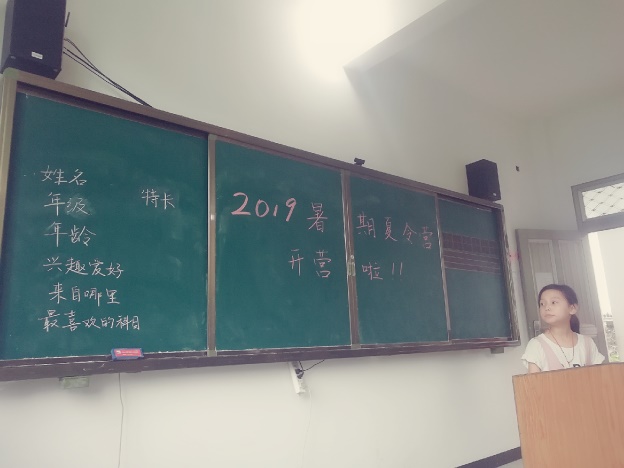 姓名
年级
特卡
年龄
兴趣爱好
来自哪里
最喜欢的科目
2019暑期夏令营
开营啦!!